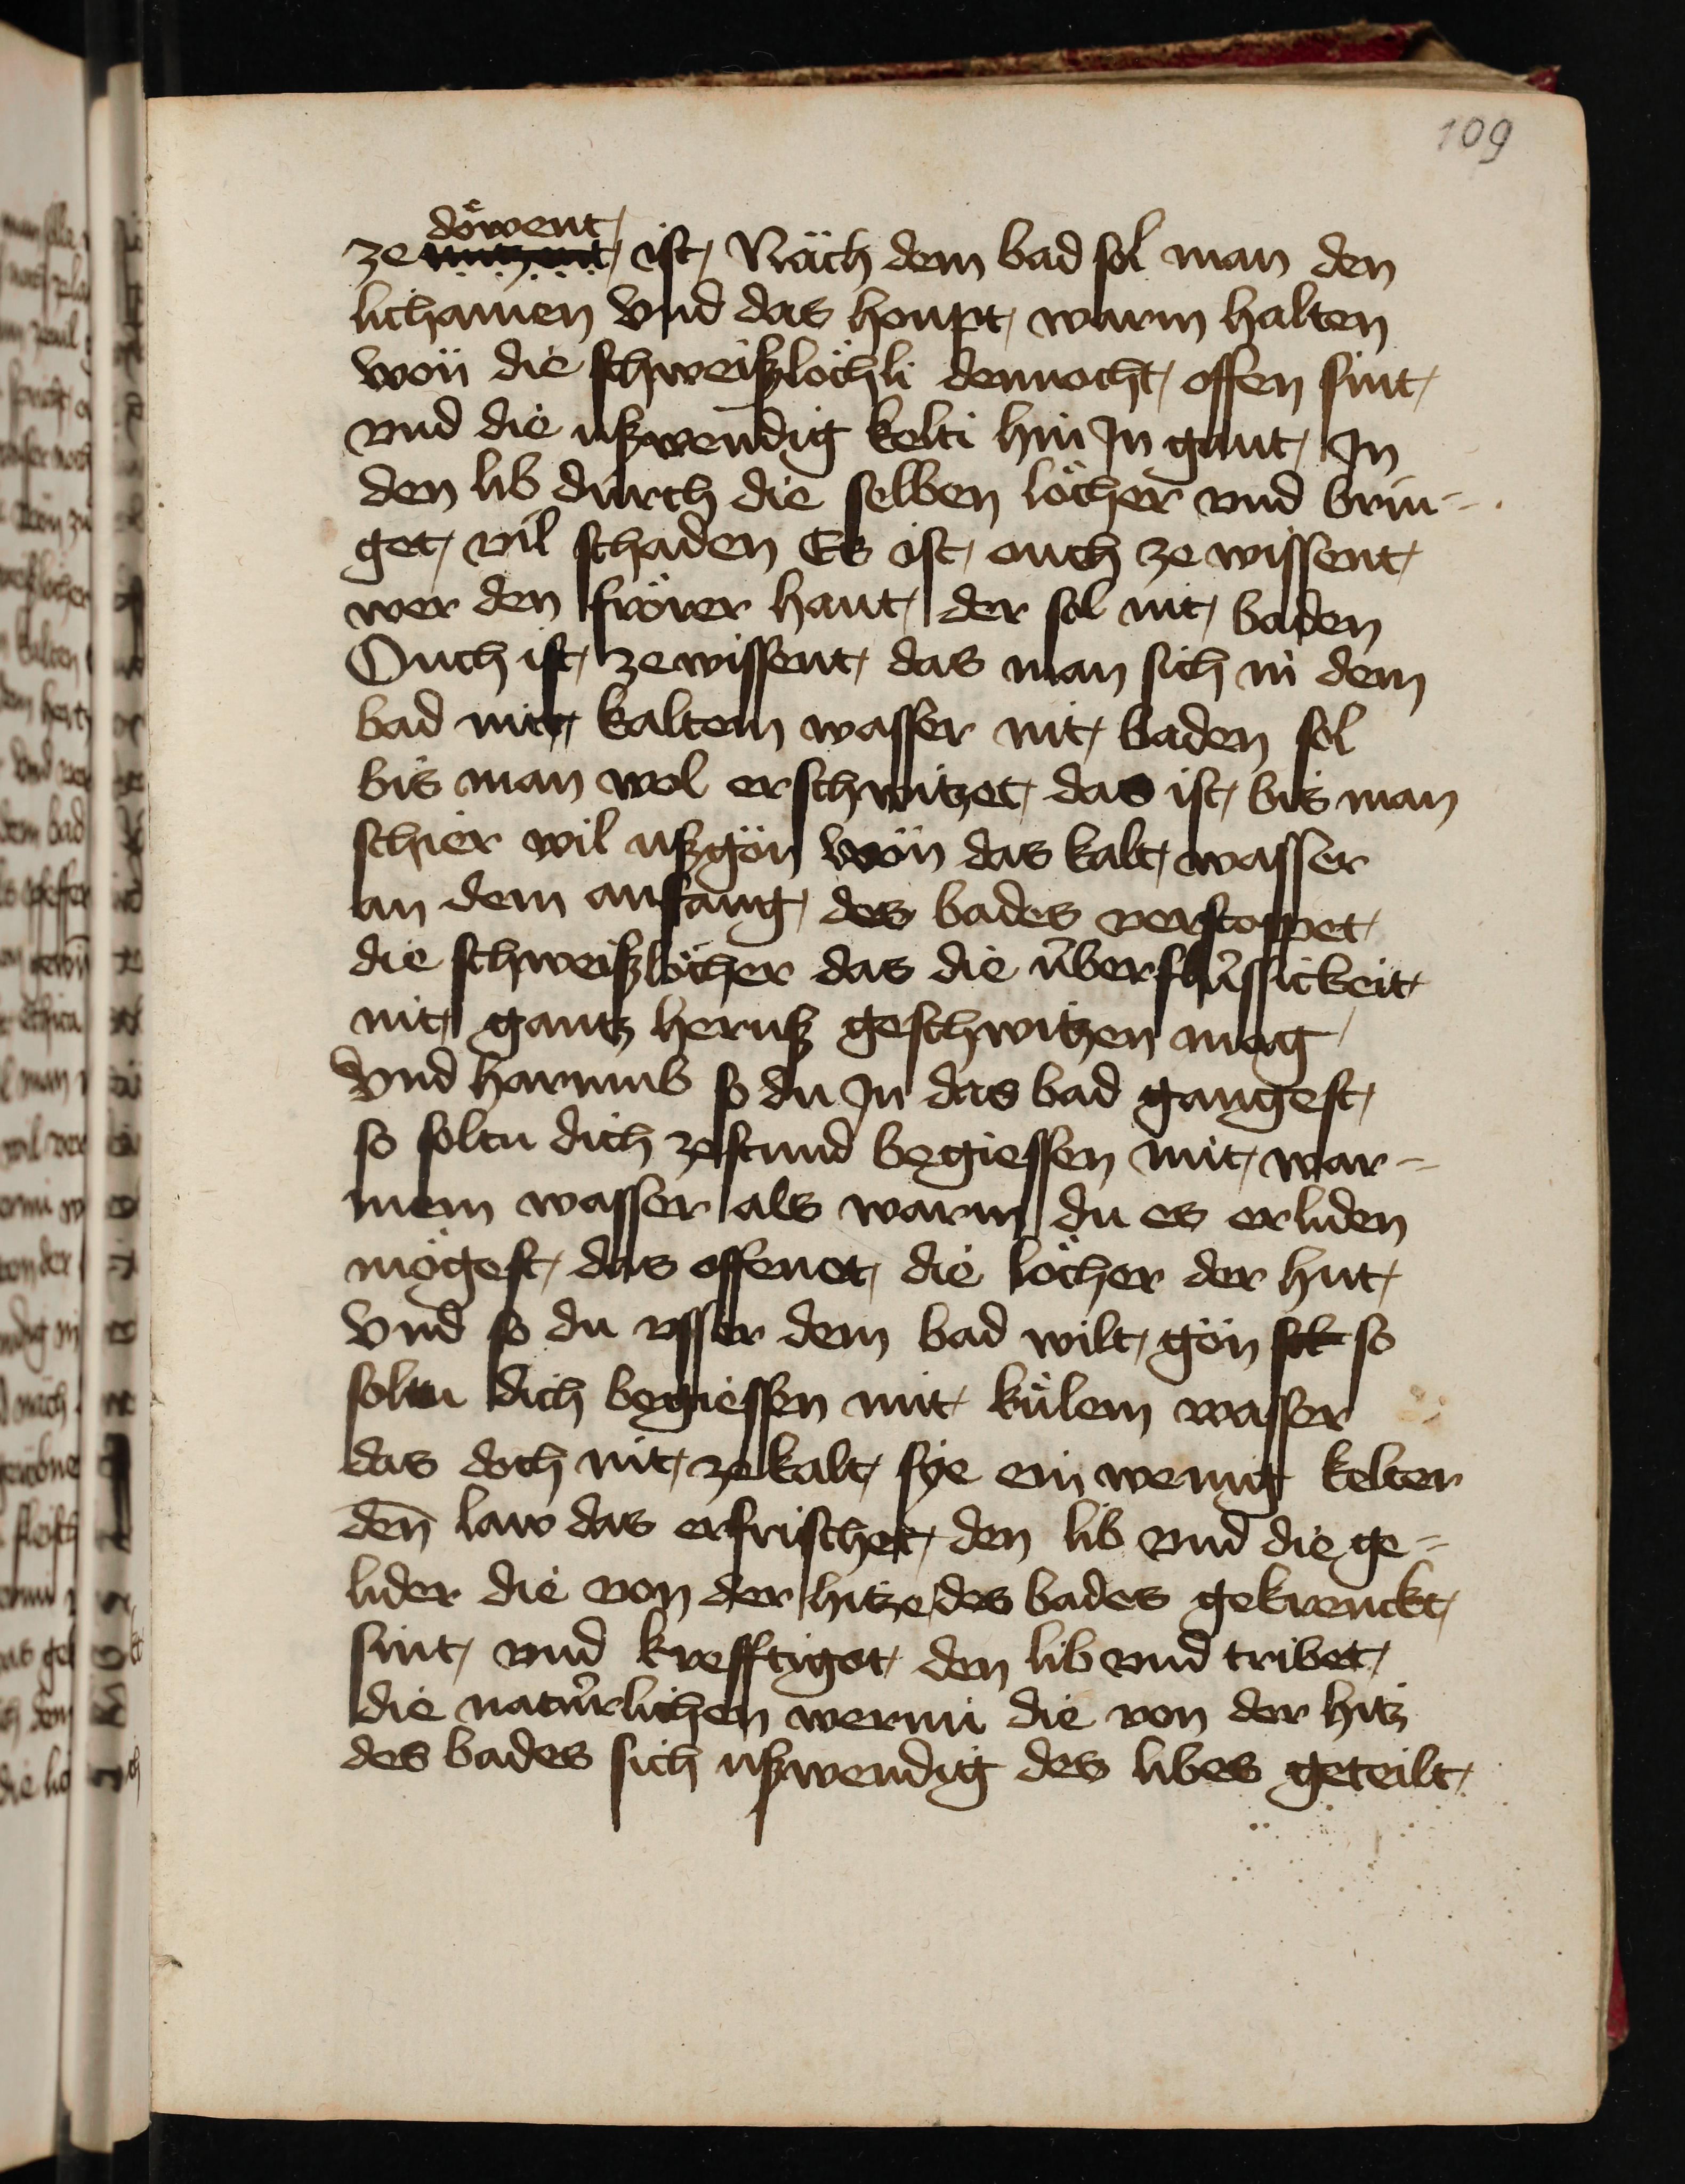 109
döwent
ze nutzent ist Näch dem bad sol man den
lichamen vnd das houpt warm halten
won die schweißlöchli dennocht offen sint
vnd die ußwendig kelti hin In gant In
den lib durch die selben löcher vnd brin=
get vil schaden Es ist ouch ze wissent
wer den frörer haut der sol nit baden
Ouch ist ze wissent das man sich in dem
bad mit kaltem wasser nit baden sol
bis man wol erschwitzet das ist bis man
schier wil ußgön wön das kalt wasser
an dem anfang des bades verstoppet
die schweißlöcher das die überflüssickeit
nit gantz heruß geschwitzen mag
Vnd harumb so du In das bad gangest
so soltu dich ze stund begiessen mit war=
mem wasser als warm du es erliden
mögest das offenet die löcher der hut
Vnd so du usser dem bad wilt gön sol so
soltu dich begiessen mit külem wasser
das doch nit ze kalt sye ein wenig kelter
den̄ law das erfrischet den lib vnd die ge=
lider die von der hitze des bades gekrenckt
sint vnd krefftiget den lib vnd tribet
die natürlichen wermi die von der hitz
des bades sich ußwendig des libes geteilt